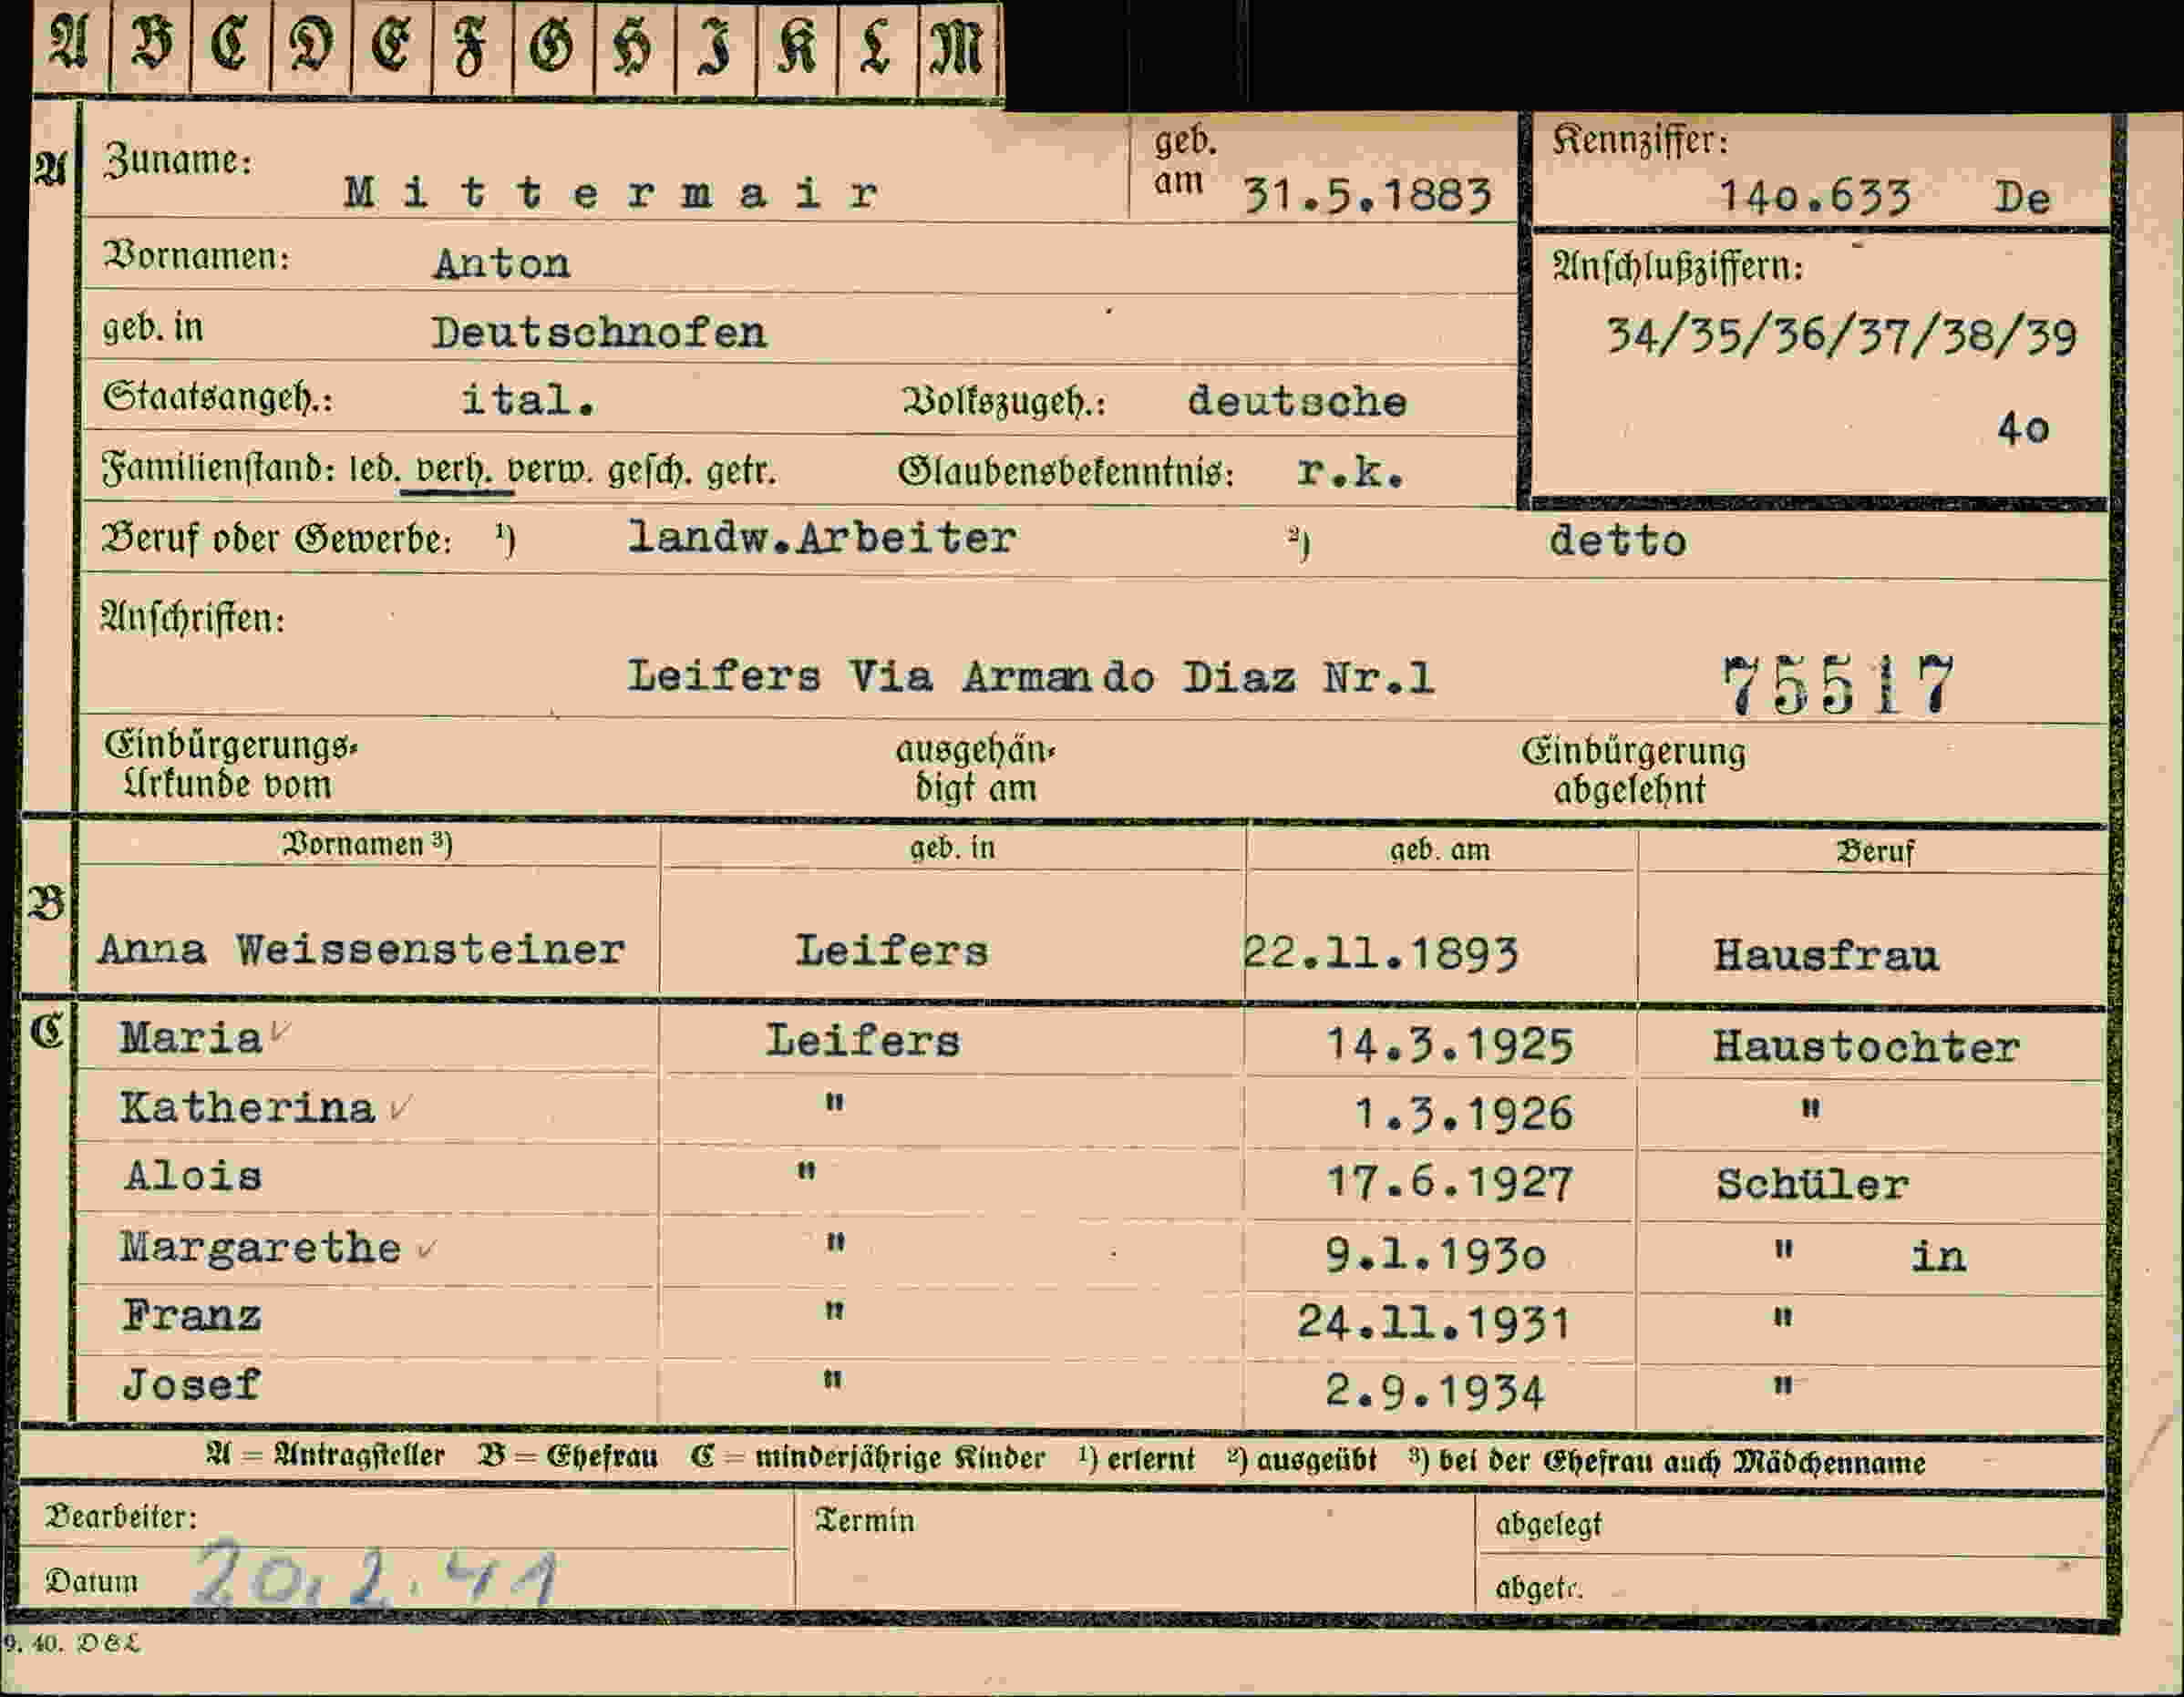 A B C D E F G H I K L M
A
Zuname: Mittermair geb. am 31.5.1883
Kennziffer: 140.633 De
Vornamen: Anton
Anschlußziffern:
34/35/36/37/38/39
40
geb. in Deutschnofen
Staatsangeh.: ital. Volkszugeh.: deutsche
Familienstand: led. verh. verw. gesch. getr. Glaubensbekenntnis: r.k.
Beruf oder Gewerbe: 1) landw.Arbeiter 2) detto
Anschriften:
Leifers Via Armando Diaz Nr.1 75517
Einbürgerungs-Urkunde vom ausgehändigt am Einbürgerung abgelehnt
Vornamen 3) geb. in geb. am Beruf
B
Anna Weissensteiner Leifers 22.11.1893 Hausfrau
C
Maria ✓ Leifers 14.3.1925 Haustochter
Katherina ✓ " 1.3.1926 "
Alois " 17.6.1927 Schüler
Margarethe ✓ " 9.1.1930 " in
Franz " 24.11.1931 "
Josef " 2.9.1934 "
A = Antragsteller B = Ehefrau C = minderjährige Kinder 1) erlernt 2) ausgeübt 3) bei der Ehefrau auch Mädchenname
Bearbeiter: Termin abgelegt
Datum 20.2.41 abgetr.
9. 40. D&L